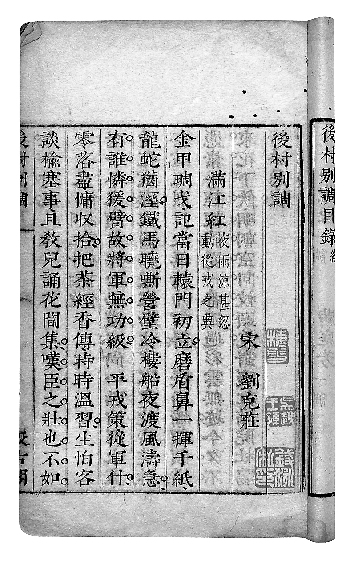 後村別調目錄終
後村別調
宋 劉克莊
滿江紅 夜雨凉甚忽
動從戎之興
金甲琱戈記當日轅門初立磨盾鼻一揮千紙
龍蛇猶溼鐵馬曉嘶營壁冷樓船夜渡風濤急
有誰憐猿臂故將軍無功級 平戎策從軍什
零落盡慵收拾把茶經香傳時時溫習生怕客
談榆塞事且敎兒誦花間集嘆臣之壯也不如